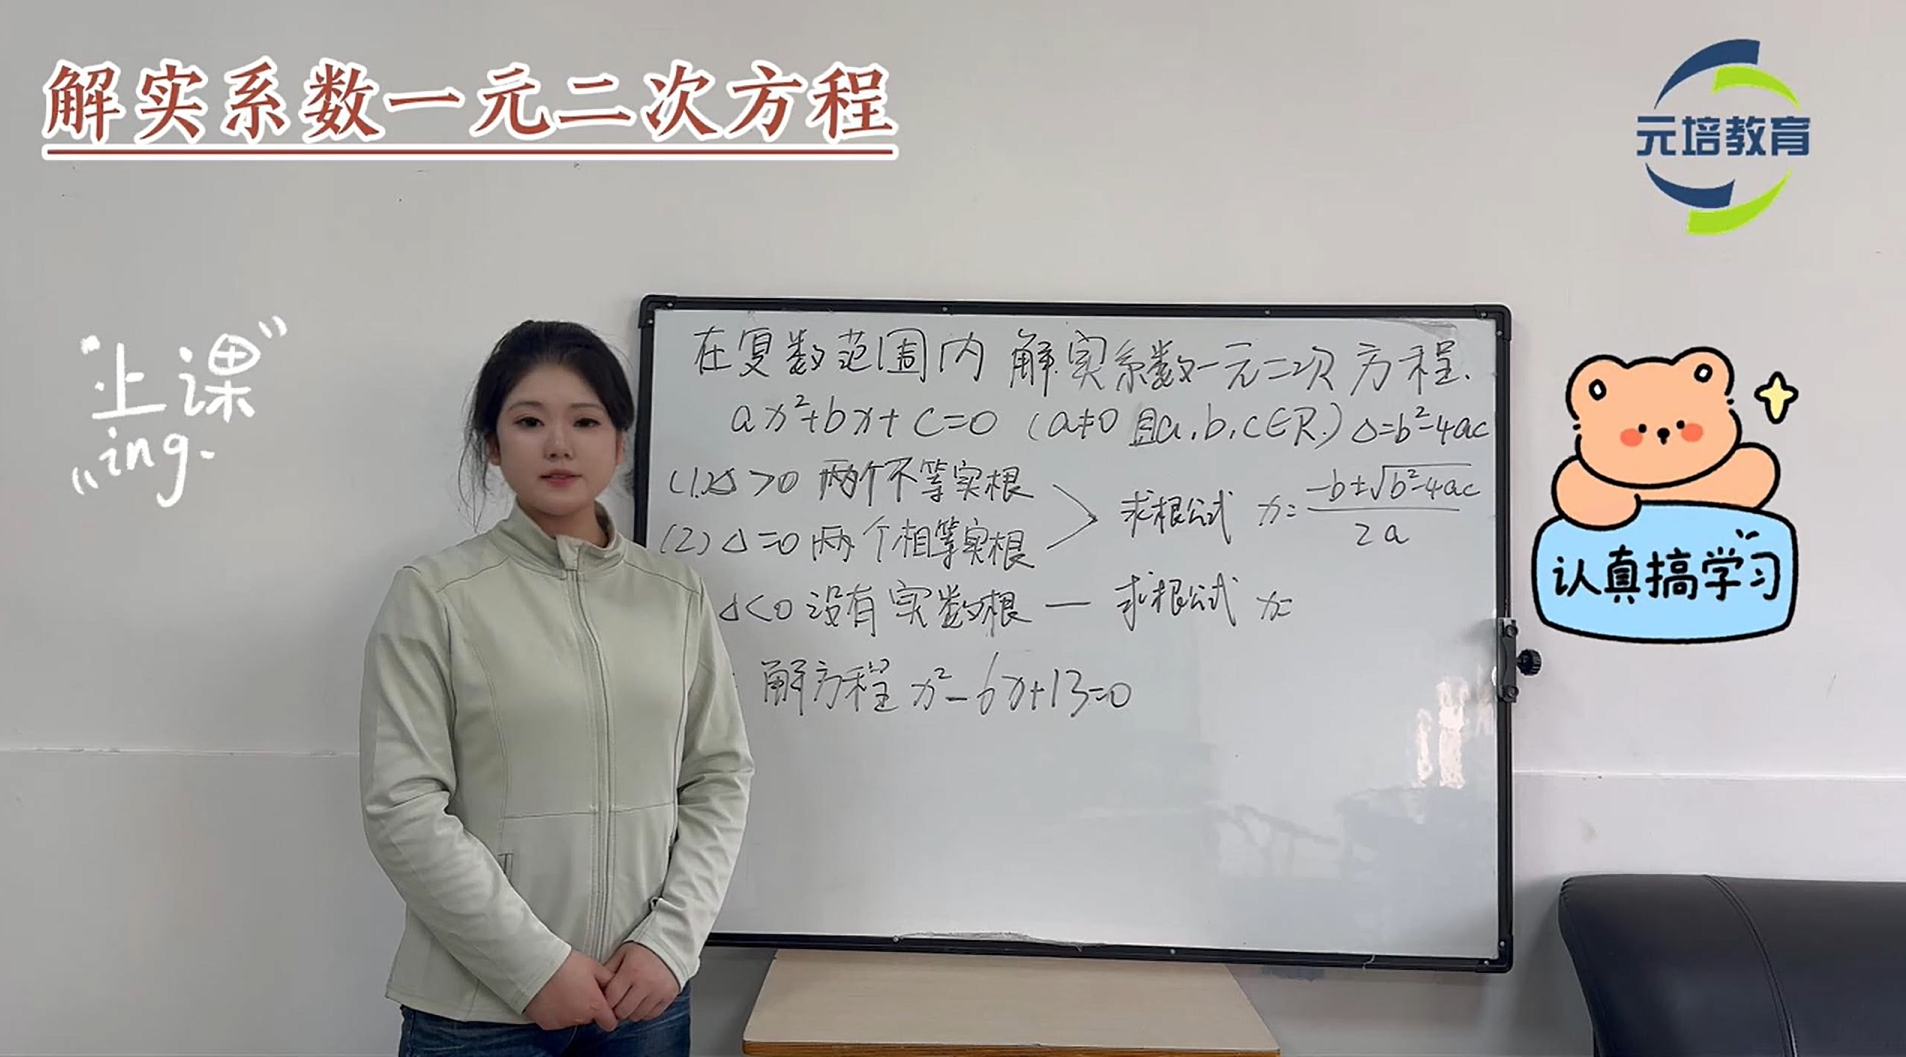 解实系数一元二次方程
元培教育
"上课"
ing.
在复数范围内 解实系数一元二次方程.
ax²+bx+c=0 (a≠0 且a,b,c∈R.) Δ=b²-4ac
(1)Δ>0 两个不等实根
(2)Δ=0 两个相等实根
求根公式 x=(-b±√(b²-4ac))/(2a)
Δ<0 没有实数根 — 求根公式 x=
解方程 x²-6x+13=0
认真搞学习